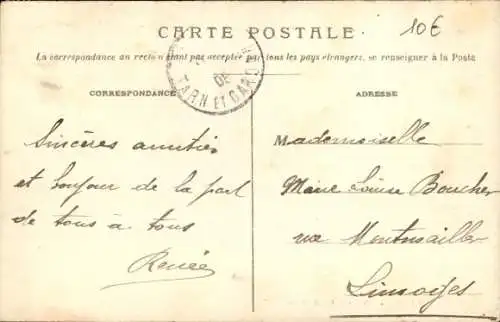 CARTE POSTALE
10€
La correspondance au recto n'étant pas acceptée par tous les pays étrangers, se renseigner à la Poste
TARN ET GARONNE
CORRESPONDANCE
ADRESSE
Sincères amitiés
et bonjour de la part
de tous à tous
Renée
Mademoiselle
Marie Louise Boucher
rue Montmailler
Limoges